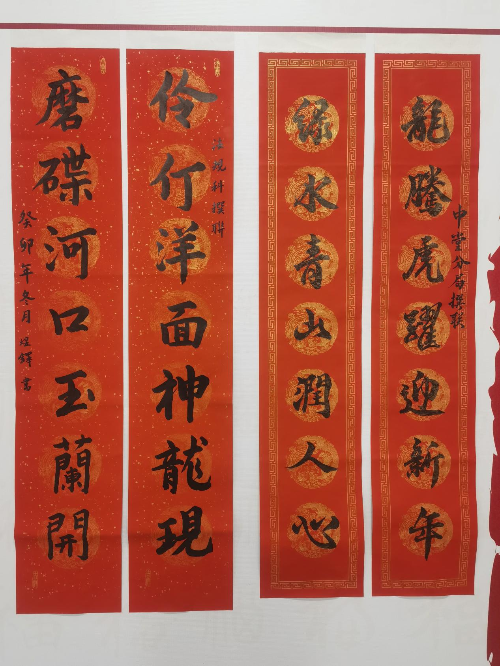 龍騰虎躍迎新年
中堂分局撰联
綠水青山潤人心
伶仃洋面神龍現
規科撰聯
磨碟河口玉蘭開
癸卯年冬月 書